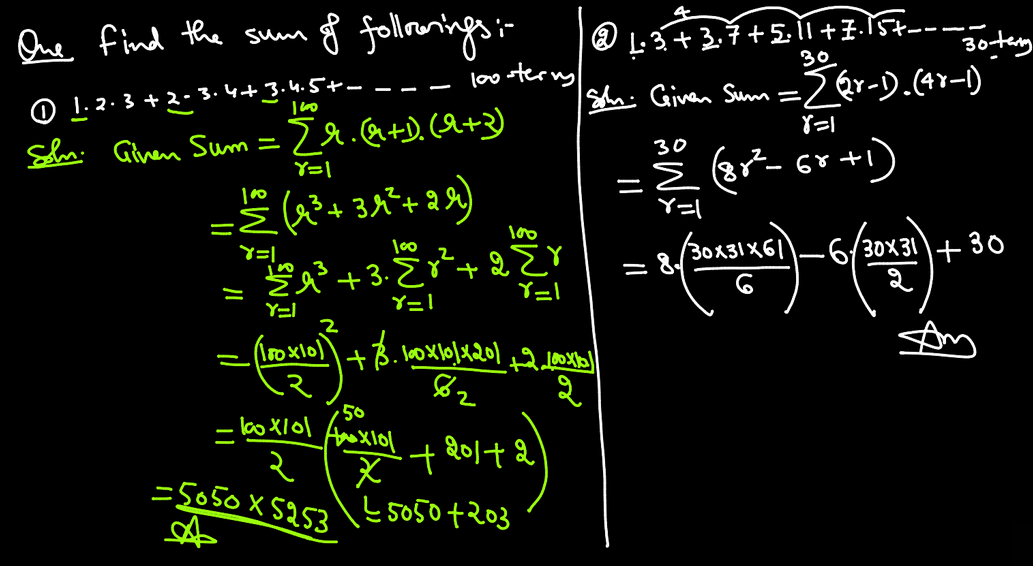 Que find the sum of followings :-
① 1.2.3 + 2.3.4 + 3.4.5 + - - - - 100-terms
Soln. Given Sum = ∑_{r=1}^{100} r.(r+1).(r+2)
= ∑_{r=1}^{100} (r³ + 3r² + 2r)
= ∑_{r=1}^{100} r³ + 3.∑_{r=1}^{100} r² + 2 ∑_{r=1}^{100} r
= (100×101/2)² + 3. 100×101×201/6 2 + 2. 100×101/2
= 100×101/2 (50 100×101/2 + 201 + 2)
= 5050 × 5253
↳ = 5050 + 203
A
② 1.3 + 3.7 + 5.11 + 7.15 + - - - - - 30-terms
4
Soln. Given Sum = ∑_{r=1}^{30} (2r-1).(4r-1)
= ∑_{r=1}^{30} (8r² - 6r + 1)
= 8.(30×31×61/6) - 6.(30×31/2) + 30
Ans